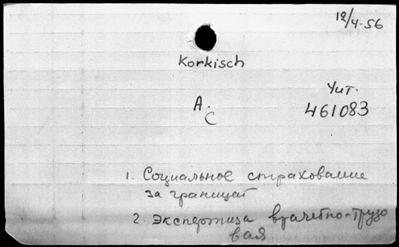 12/4-56
Korkisch
Чит.
А.
С
461083
1. Социальное страхование
за границей
2. Экспертиза врачебно-трудо
вая